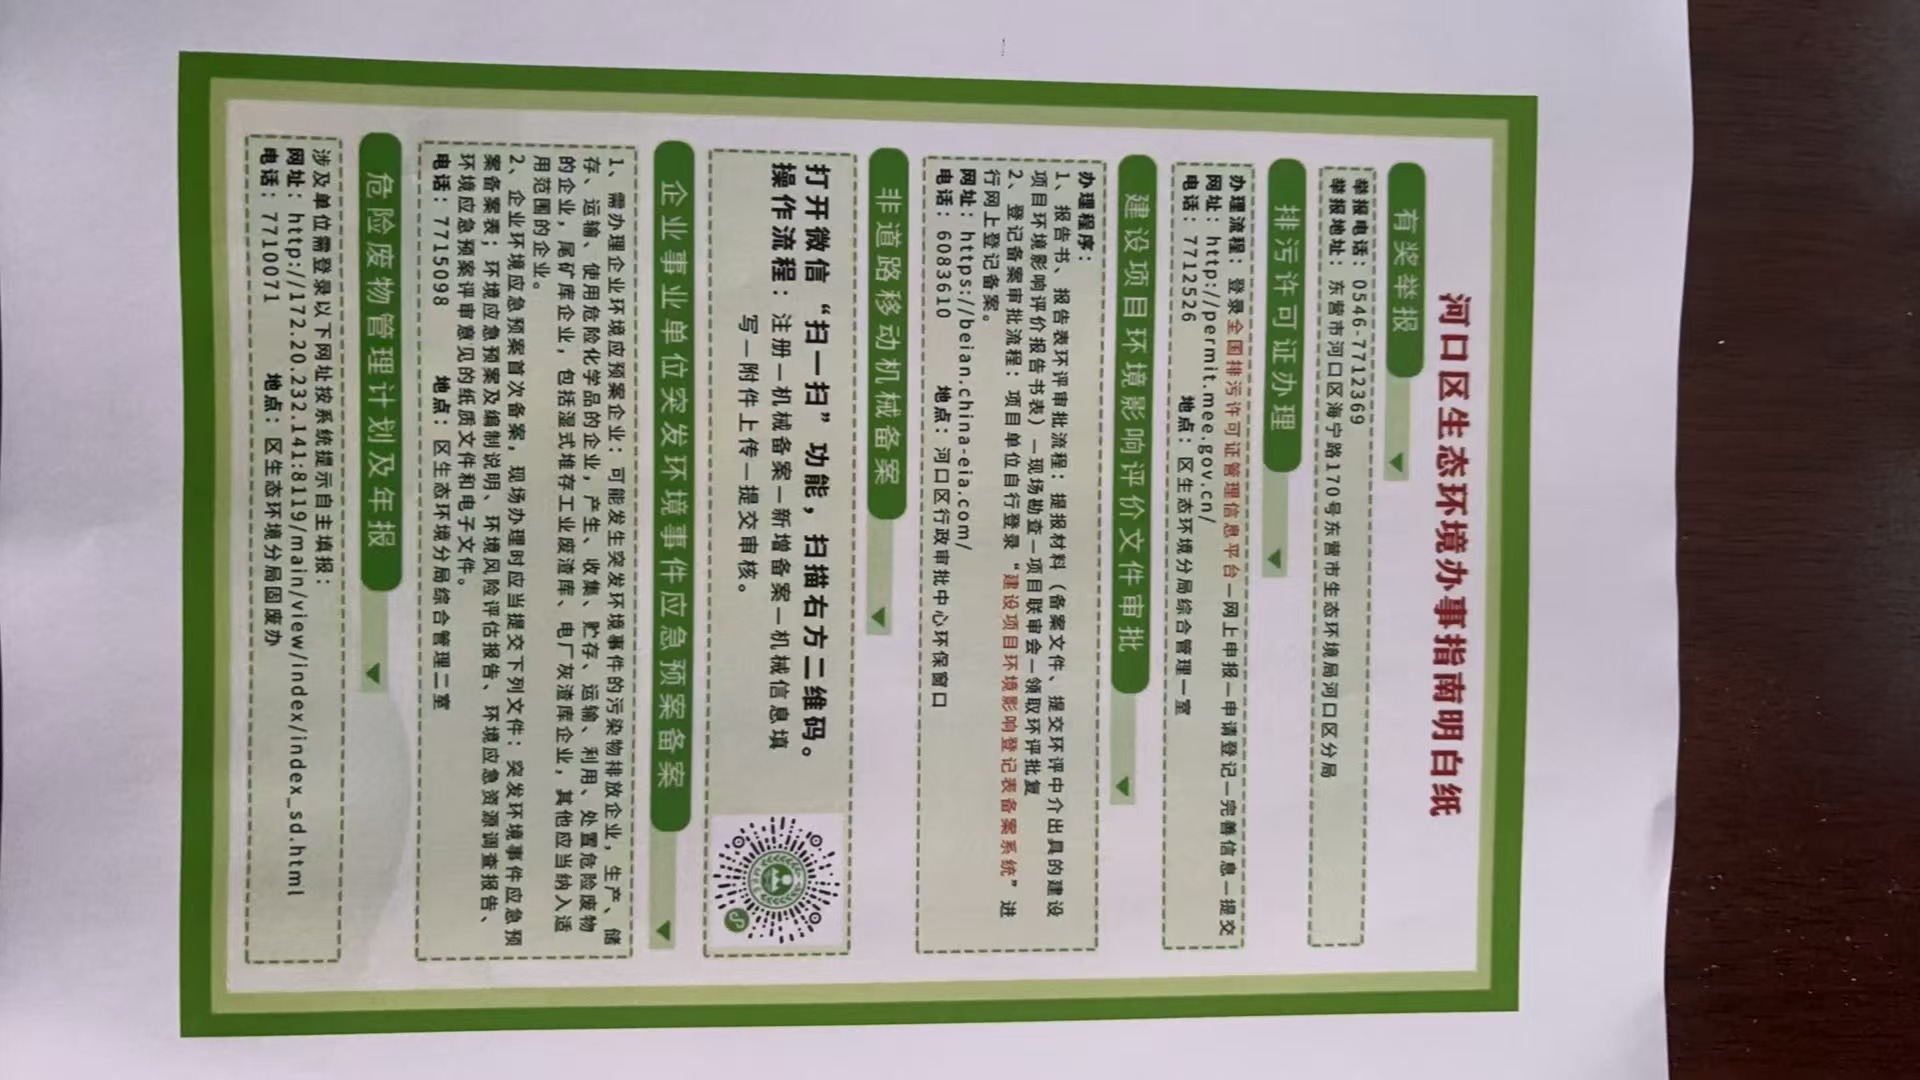 河口区生态环境办事指南明白纸
有奖举报
举报电话：0546-7712369
举报地址：东营市河口区海宁路170号东营市生态环境局河口区分局
排污许可证办理
办理流程：登录全国排污许可证管理信息平台—网上申报—申请登记—完善信息—提交
网址：http://permit.mee.gov.cn/
电话：7712526 地点：区生态环境分局综合管理一室
建设项目环境影响评价文件审批
办理程序：
1、报告书、报告表环评审批流程：提报材料（备案文件、提交环评中介出具的建设
项目环境影响评价报告书表）—现场勘查—项目联审会—领取环评批复
2、登记备案审批流程：项目单位自行登录“建设项目环境影响登记表备案系统”进
行网上登记备案。
网址：https://beian.china-eia.com/
电话：6083610 地点：河口区行政审批中心环保窗口
非道路移动机械备案
打开微信“扫一扫”功能，扫描右方二维码。
操作流程：注册—机械备案—新增备案—机械信息填
写—附件上传—提交审核。
企业事业单位突发环境事件应急预案备案
1、需办理企业环境应预案企业：可能发生突发环境事件的污染物排放企业，生产、储
存、运输、使用危险化学品的企业，产生、收集、贮存、运输、利用、处置危险废物
的企业，尾矿库企业，包括湿式堆存工业废渣库、电厂灰渣库企业，其他应当纳入适
用范围的企业。
2、企业环境应急预案首次备案，现场办理时应当提交下列文件：突发环境事件应急预
案备案表；环境应急预案及编制说明、环境风险评估报告、环境应急资源调查报告、
环境应急预案评审意见的纸质文件和电子文件。
电话：7715098 地点：区生态环境分局综合管理二室
危险废物管理计划及年报
涉及单位需登录以下网址按系统提示自主填报：
网址：http://172.20.232.141:8119/main/view/index/index_sd.html
电话：7710071 地点：区生态环境分局固废办